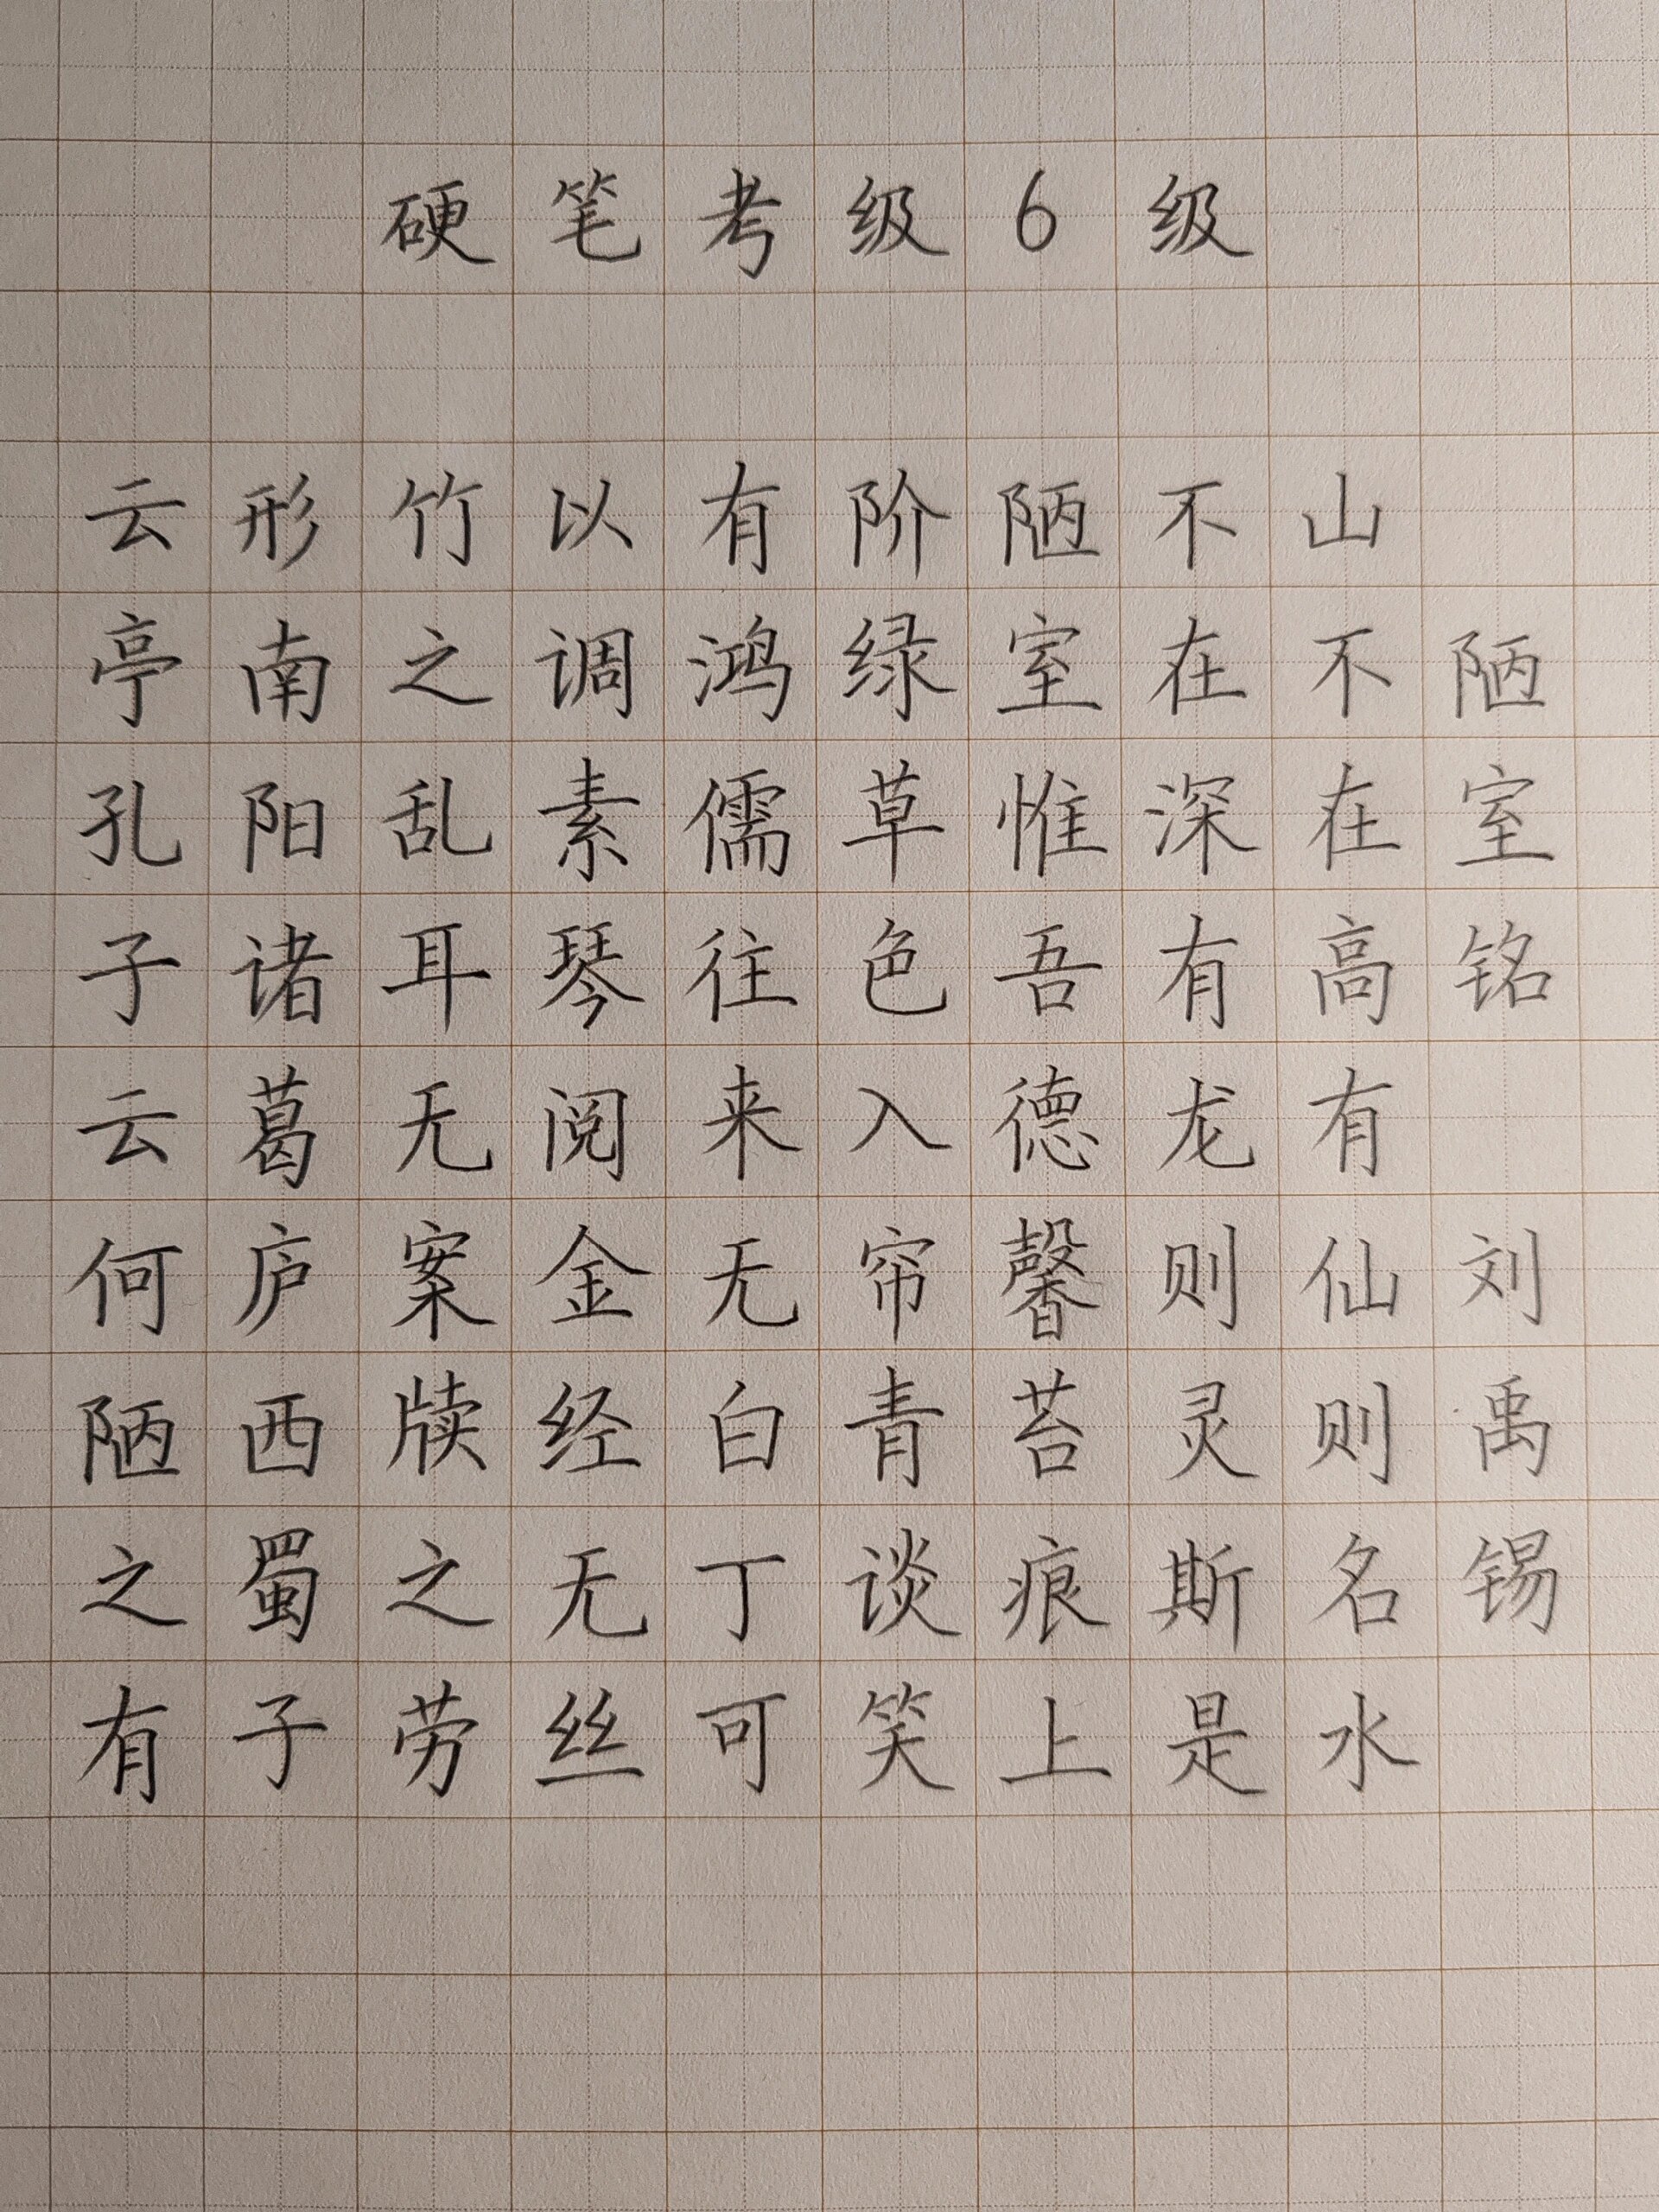 硬笔考级6级
陋室铭 刘禹锡
山不在高有仙则名水
不在深有龙则灵斯是
陋室惟吾德馨苔痕上
阶绿草色入帘青谈笑
有鸿儒往来无白丁可
以调素琴阅金经无丝
竹之乱耳无案牍之劳
形南阳诸葛庐西蜀子
云亭孔子云何陋之有